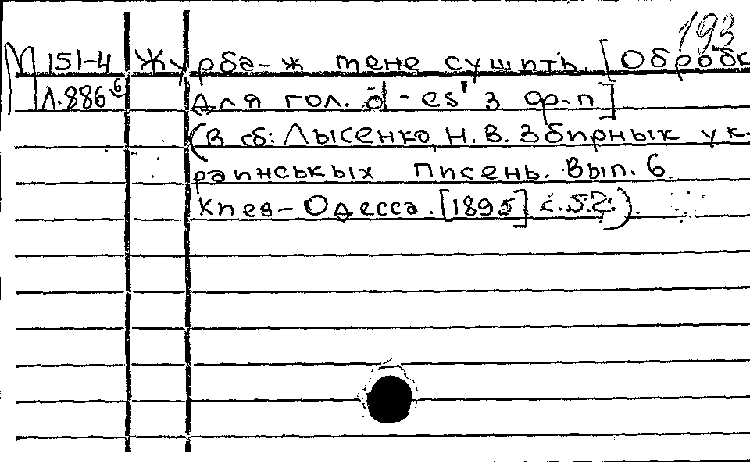 193
М 151-4 Журба-ж мене сушить. [Обробк
Л.886б для гол. d̄ - es'' з ф-п]
(В сб: Лысенко, Н. В. Збирнык ук
раинськых писень. Вып. 6
Киев-Одесса. [1895] с.52.)